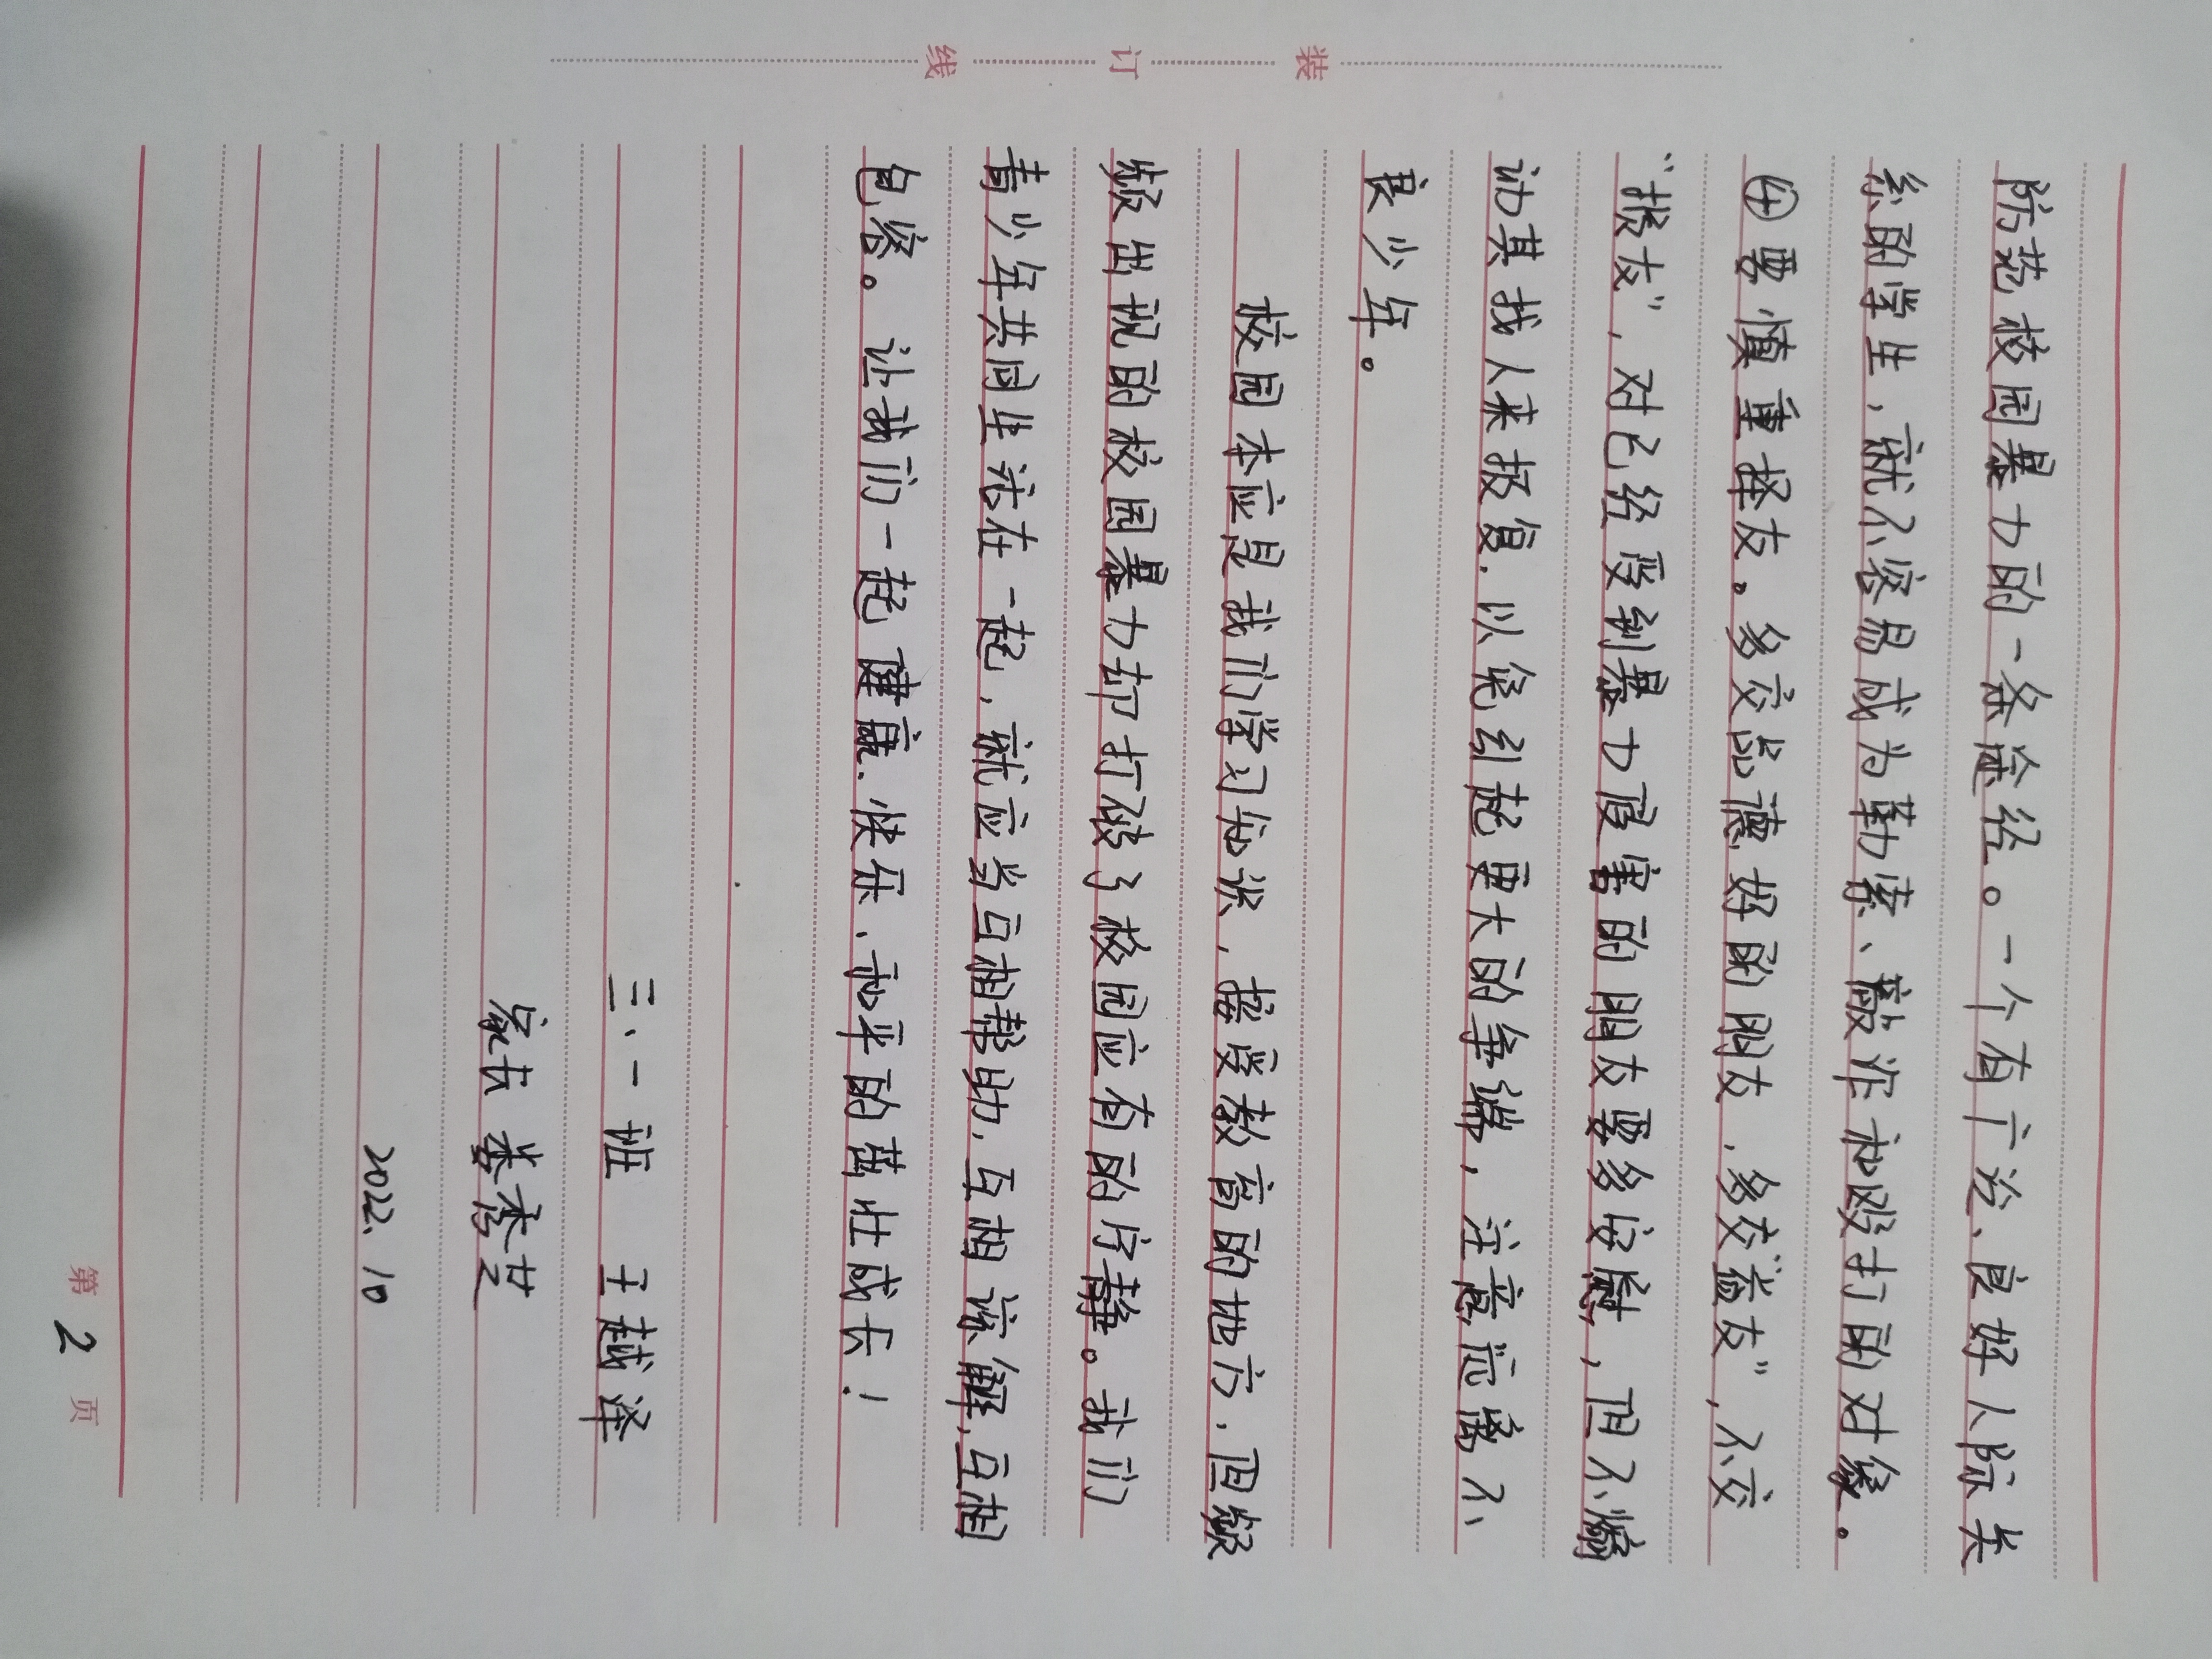 装订线
防范校园暴力的一条途径。一个有广泛、良好人际关
系的学生,就不容易成为勒索、敲诈和殴打的对象。
④要慎重择友。多交品德好的朋友,多交“益友”,不交
“损友”,对已经受到暴力侵害的朋友要多安慰,但不煽
动其找人来报复.以免引起更大的争端,注意远离不
良少年。
校园本应是我们学习知识,接受教育的地方.但频
频出现的校园暴力却打破了校园应有的宁静。我们
青少年共同生活在一起,就应当互相帮助.互相谅解,互相
包容。让我们一起健康.快乐.和平的茁壮成长!
三、一班 王越泽
家长 娄秀芝
2022.10
第2页